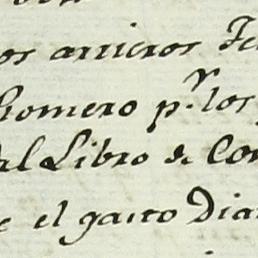 os arrieros Fe
Romero pr. los
al Libro de Con
e el gasto Dia